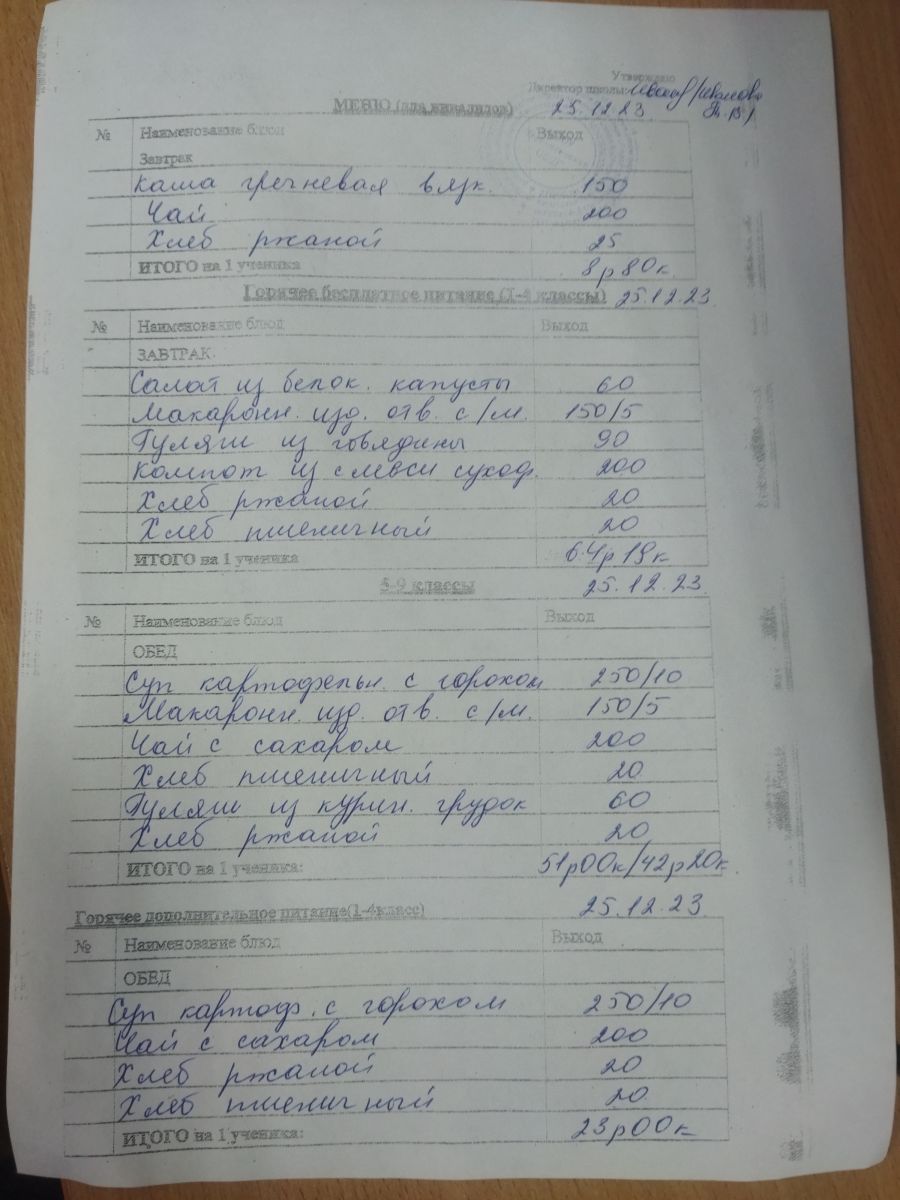 Утверждаю
Директор школы:
МЕНЮ (для инвалидов) 25.12.23
№ Наименование блюд Выход
Завтрак
Каша гречневая вязк. 150
Чай 200
Хлеб ржаной 25
ИТОГО на 1 ученика 8р80к.
Горячее бесплатное питание (1-4 классы) 25.12.23
№ Наименование блюд Выход
ЗАВТРАК
Салат из белок. капусты 60
Макаронн. изд. отв. с/м. 150/5
Гуляш из говядины 90
Компот из смеси сухоф. 200
Хлеб ржаной 20
Хлеб пшеничный 20
ИТОГО на 1 ученика 64р19к
5-9 классы 25.12.23
№ Наименование блюд Выход
ОБЕД
Суп картофельн. с горохом 250/10
Макаронн. изд. отв. с/м. 150/5
Чай с сахаром 200
Хлеб пшеничный 20
Гуляш из курин. грудок 60
Хлеб ржаной 20
ИТОГО на 1 ученика: 51р00к/42р20к
Горячее дополнительное питание(1-4класс) 25.12.23
№ Наименование блюд Выход
ОБЕД
Суп картоф. с горохом 250/10
Чай с сахаром 200
Хлеб ржаной 20
Хлеб пшеничный 20
ИТОГО на 1 ученика: 23р00к